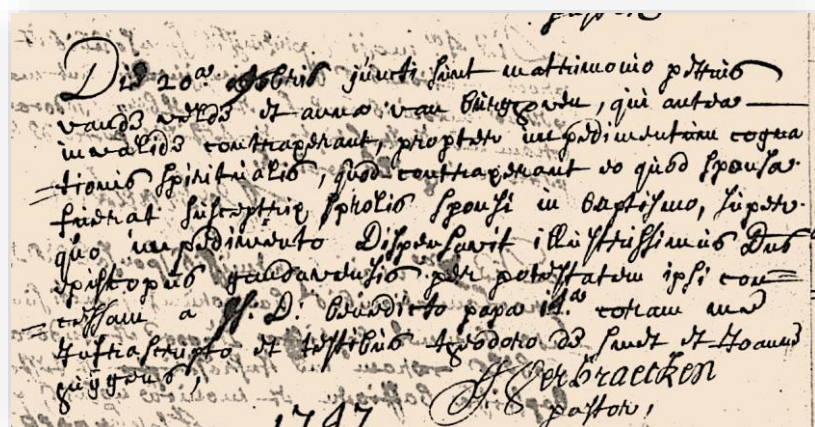 pastor
Die 20a octobris juncti sunt mattrimonio petrus
vande velde et anna van , qui antea
invalide contraxerant, propter impedimentum cogna
tionis spiritualis, quod contraxerant eo quod sponsa
fuerat susceptrix prolis sponsi in baptismo, super
quo impedimento Dispensavit illustrissimus Dns
episcopus gandavensis per potestatem ipsi con=
cessam a SS. D. benedicto papa 14.to coram me
Infrascripto et testibus theodoro de smet et Joanne
huÿgens,
J. Verbraecken
pastor,
1747